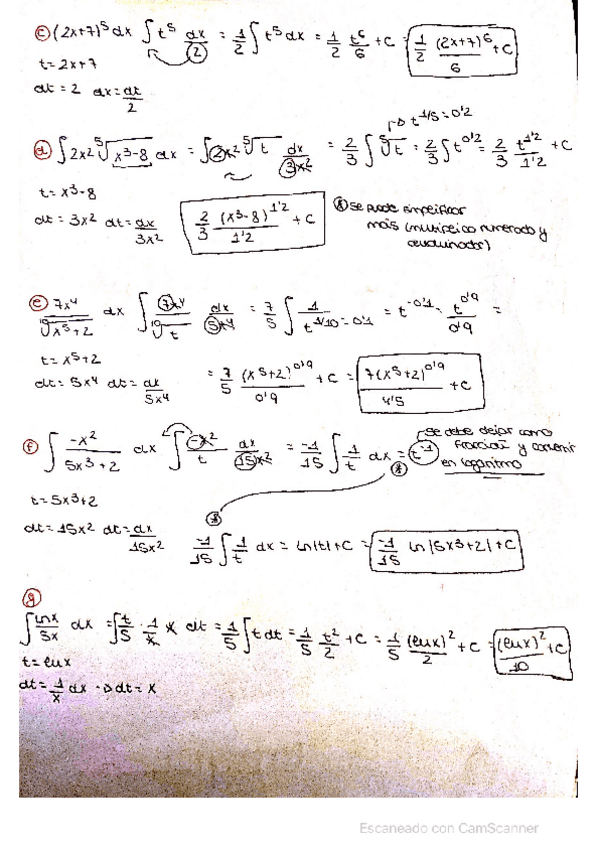 c) (2x+7)⁵ dx ∫ t⁵ dx/2 = 1/2 ∫ t⁵ dx = 1/2 t⁶/6 + C = 1/2 (2x+7)⁶/6 + C
t = 2x+7
dt = 2 dx = dt/2
▷ t^1/5 = 0'2
d) ∫ 2x² ⁵√(x³-8) dx = ∫ 2x² ⁵√t dx/3x² = 2/3 ∫ ⁵√t = 2/3 ∫ t^0'2 = 2/3 t^1'2/1'2 + C
t = x³-8
dt = 3x² dt = dx/3x² 2/3 (x³-8)^1'2/1'2 + C
* se puede simplificar
más (multiplico numerador y
denominador)
e) 7x⁴/¹⁰√(x⁵+2) dx ∫ 7x⁴/¹⁰√t dx/5x⁴ = 7/5 ∫ 1/t^1/10=0'1 = t^-0'1 = t^0'9/0'9 =
t = x⁵+2
dt = 5x⁴ dt = dx/5x⁴ = 7/5 (x⁵+2)^0'9/0'9 + C = 7(x⁵+2)^0'9/4'5 + C
f) ∫ -x²/5x³+2 dx ∫ -x²/t dx/15x² = -1/15 ∫ 1/t dx = t⁻¹ *
se debe dejar como
fracción y convenir
en logaritmo
t = 5x³+2
dt = 15x² dt = dx/15x² * -1/15 ∫ 1/t dx = ln|t| + C = -1/15 ln|5x³+2| + C
g)
∫ lnx/5x dx = ∫ t/5 · 1/x x dt = 1/5 ∫ t dt = 1/5 t²/2 + C = 1/5 (lnx)²/2 + C = (lnx)²/10 + C
t = lnx
dt = 1/x dx → dt = x
Escaneado con CamScanner